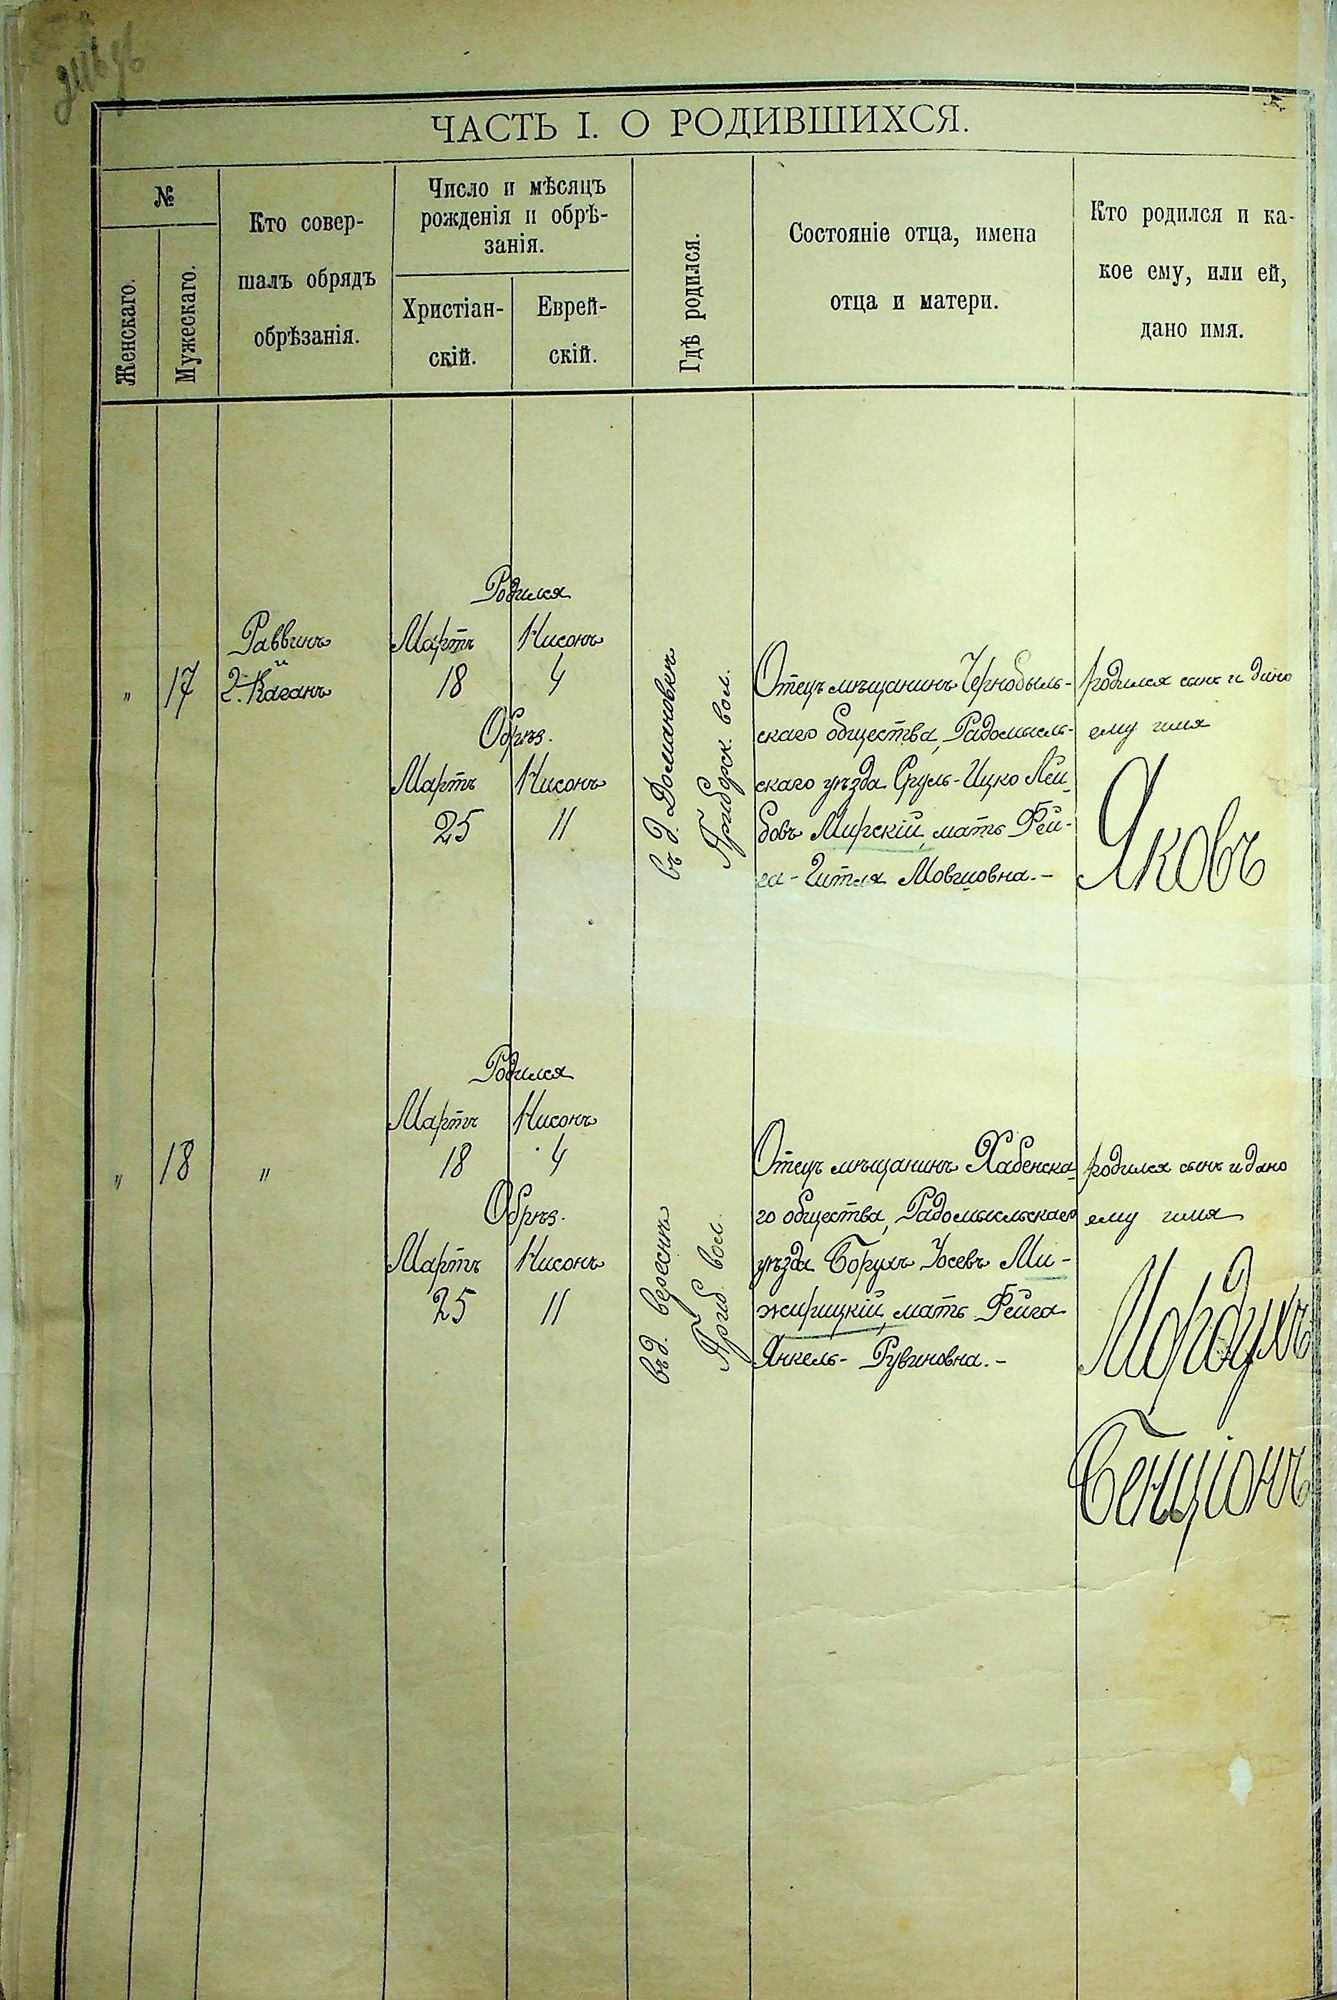 ЧАСТЬ I. О РОДИВШИХСЯ.
№
Женскаго.
Мужескаго.
Кто совер-
шалъ обрядъ
обрѣзанія.
Число и мѣсяцъ
рожденія и обрѣ-
занія.
Христіан-
скій.
Еврей-
скій.
Гдѣ родился.
Состояніе отца, имена
отца и матери.
Кто родился и ка-
кое ему, или ей,
дано имя.
"
17
Раввинъ
Каганъ
Родился
Мартъ Нисонъ
18 4
Обрѣз.
Мартъ Нисонъ
25 11
въ д. Домановкѣ
Приборск. вол.
Отецъ мѣщанинъ Чернобыль-
скаго общества, Радомысль-
скаго уѣзда Сруль-Ицко Лей-
бовъ Мирскій, мать Фей-
га-Гитля Мовшовна.-
родился сынъ и дано
ему имя
Яковъ
"
18
"
Родился
Мартъ Нисонъ
18 4
Обрѣз.
Мартъ Нисонъ
25 11
въ д.
Приб. вол.
Отецъ мѣщанинъ Хабенска-
го общества, Радомысльскаго
уѣзда Борухъ Іосевъ Ми-
жирицкій, мать Фейга
Янкель-Рувиновна.-
родился сынъ и дано
ему имя
Мордухъ
Бенціонъ